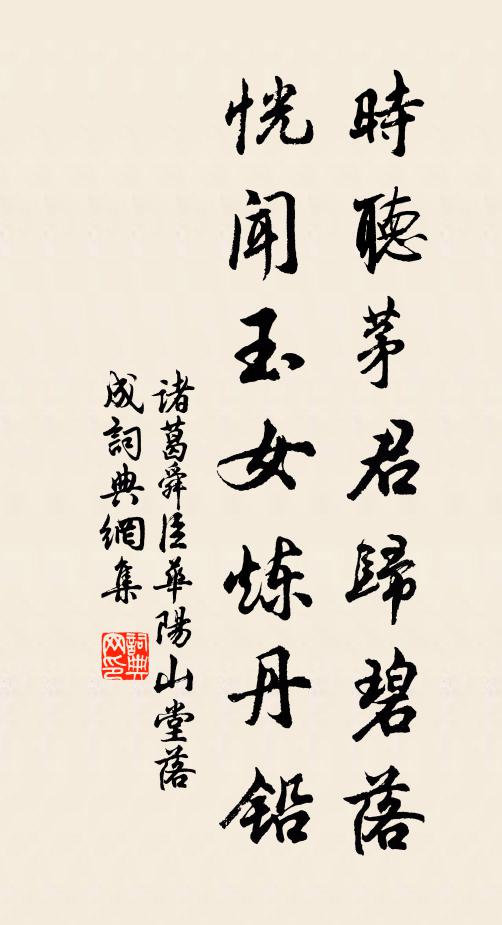 時聽茅君歸碧落
恍聞玉女炼丹鉛
諸葛舜臣華陽山堂落
成詞典網集
詞典
网印